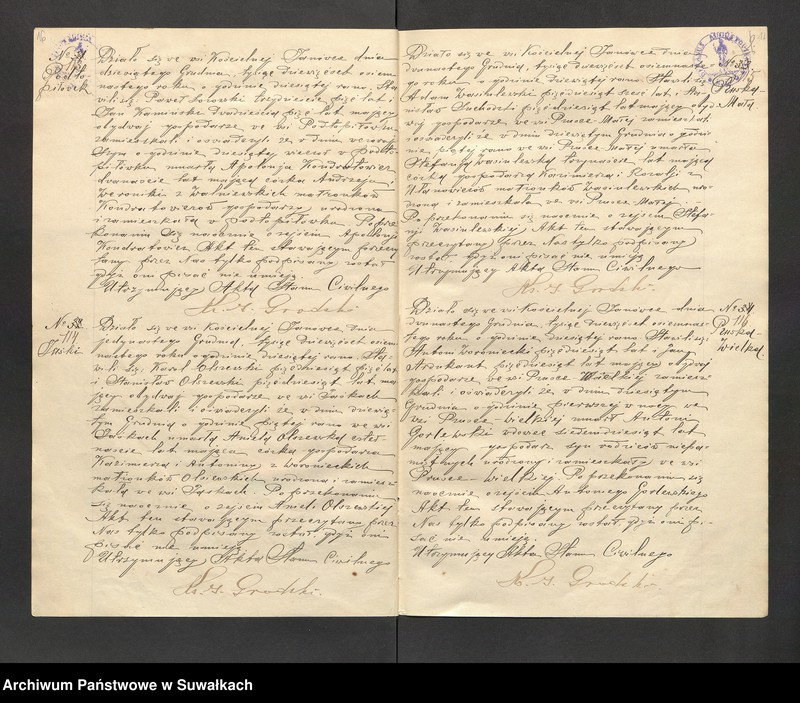 16
No 51
Podło-
piłówek
Działo się we wsi Kościelnej Janówce dnia
dziesiątego Grudnia, tysiąc dziewięćset osiem-
nastego roku o godzinie dziesiątej rano. Sta-
wili się Paweł trzydzieście pięć lat i
Jan Kamiński dwadzieścia pięć lat mający
obydwaj gospodarze we wsi
zamieszkali i oświadczyli że w dniu wczoraj-
szym o godzinie dziesiątej wieczór w
umarła Apolonja Kondratowicz
dwanaście lat mająca córka Andrzeja i
Weroniki z małżonków
Kondratowiczów gospodarzy, urodzona
i zamieszkała w Po prze-
konaniu się naocznie o zejściu Apolonji
Kondratowicz Akt ten stawającym przeczy-
tany przez Nas tylko podpisany został
gdyż oni pisać nie umieją.
Utrzymujący Akta Stanu Cywilnego
Ks. J. Grodzki
No 52
114
Jaśki
Działo się we wsi Kościelnej Janówce, dnia
jedynastego Grudnia, tysiąc dziewięćset osiem-
nastego roku o godzinie dziesiątej rano. Sta-
wili się Karol Olszewski pięćdziesiąt pięć lat
i Stanisław Olszewski pięćdziesiąt lat ma-
jący obydwaj gospodarze we wsi Jaśkach
zamieszkali i oświadczyli że w dniu dziewią-
tym Grudnia o godzinie piątej rano we wsi
Jaśkach umarła Amelja Olszewska czter-
naście lat mająca córka gospodarza
Kazimierza i Antoniny z Woronieckich
małżonków Olszewskich urodzona i zamiesz-
kała we wsi Jaśkach. Po przekonaniu
się naocznie o zejściu Amelji Olszewskiej
Akt ten stawającym przeczytany przez
Nas tylko podpisany został, gdyż oni
pisać nie umieją.
Utrzymujący Akta Stanu Cywilnego
Ks. J. Grodzki.
No 53
Pruska-
Mała
Działo się we wsi Kościelnej Janówce dnia
dwunastego Grudnia, tysiąc dziewięćset osiemnaste-
go roku o godzinie dziesiątej rano Stawili się
Adam Wasilewski pięćdziesiąt sześć lat i Sta-
nisław Suchocki pięćdziesiąt lat mający obyd-
waj gospodarze we wsi Prusce Małej zamieszkali
i oświadczyli że w dniu dziesiątym Grudnia o godzi-
nie piątej rano we wsi Prusce Małej umarła
Stefanja Wasilewska trzynaście lat mająca
córka gospodarza Kazimierza i Rozalji z
Ułanowiczów małżonków Wasilewskich uro-
dzona i zamieszkała we wsi Prusce Małej.
Po przekonaniu się naocznie o zejściu Stefa-
nji Wasilewskiej Akt ten stawającym
przeczytany przez Nas tylko podpisany
został gdyż oni pisać nie umieją
Utrzymujący Akta Stanu Cywilnego
Ks. J. Grodzki.
No 54
116
Pruska-
Wielka
Działo się we wsi Kościelnej Janówce dnia
dwunastego Grudnia, tysiąc dziewięćset osiemnas-
tego roku, o godzinie dziesiątej rano Stawili się
Antoni Woroniecki pięćdziesiąt lat i Jan
pięćdziesiąt lat mający obydwaj
gospodarze we wsi Prusce Wielkiej zamiesz-
kali i oświadczyli że w dniu dziesiątym
Grudnia o godzinie pierwszej w nocy we
wsi Prusce-Wielkiej umarł Antoni
Gorlewski wdowiec siedemdziesiąt lat
mający gospodarz syn rodziców niepa-
miętnych urodzony i zamieszkały we wsi
Prusce-Wielkiej. Po przekonaniu się
naocznie o zejściu Antoniego Gorlewskiego
Akt ten stawającym przeczytany przez
Nas tylko podpisany został gdyż oni pi-
sać nie umieją.
Utrzymujący Akta Stanu Cywilnego
Ks. J. Grodzki.
Archiwum Państwowe w Suwałkach